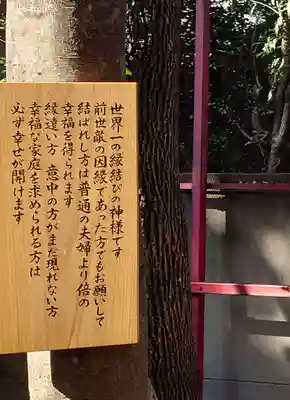 世界一の縁結びの神様です
前世敵の因縁であった方でもお願いして
結ばれし方は普通の夫婦より倍の
幸福を得られます
縁遠い方 意中の方がまた現れない方
幸福な家庭を求められる方は
必ず幸せが開けます